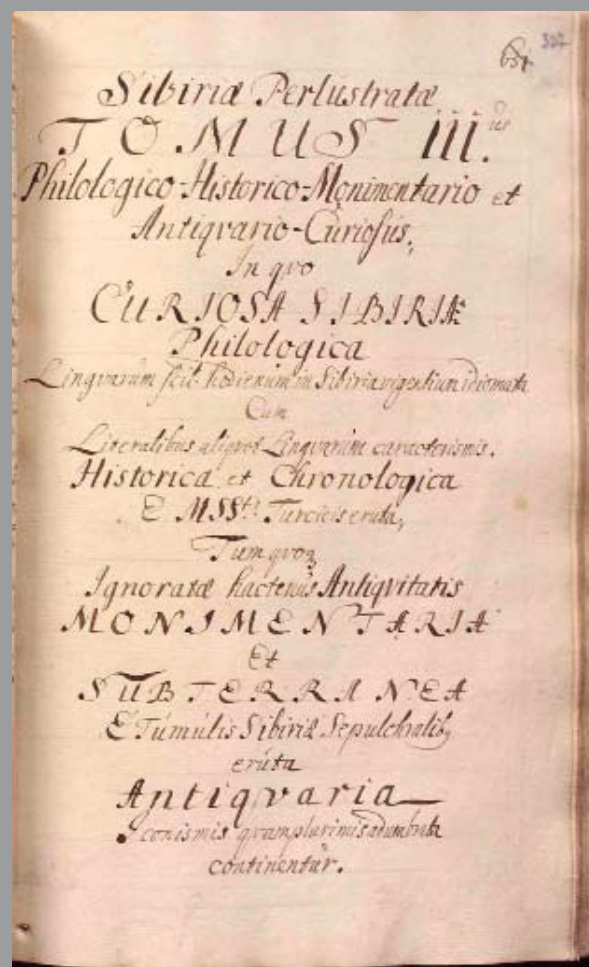 307
Sibiriæ Perlustratæ
TOMUS III.ius
Philologico-Historico-Monimentario et
Antiqvario-Curiosus,
In qvo
CURIOSA SIBIRIÆ
Philologica
Lingvarum scil. hodienum in Sibiria vigentium idiomata
Cum
Literalibus aliqvot Lingvarum caracterismis.
Historica et Chronologica
E MSStis Turcicis eruta,
Tum qvoq
Ignoratæ hactenus Antiqvitatis
MONIMENTARIA
Et
SUBTERRANEA
E Túmúlis Sibiriæ Sepulchralib9
erúta
Antiqvaria
Iconismis qvamplurimis adumbrata
continentúr.